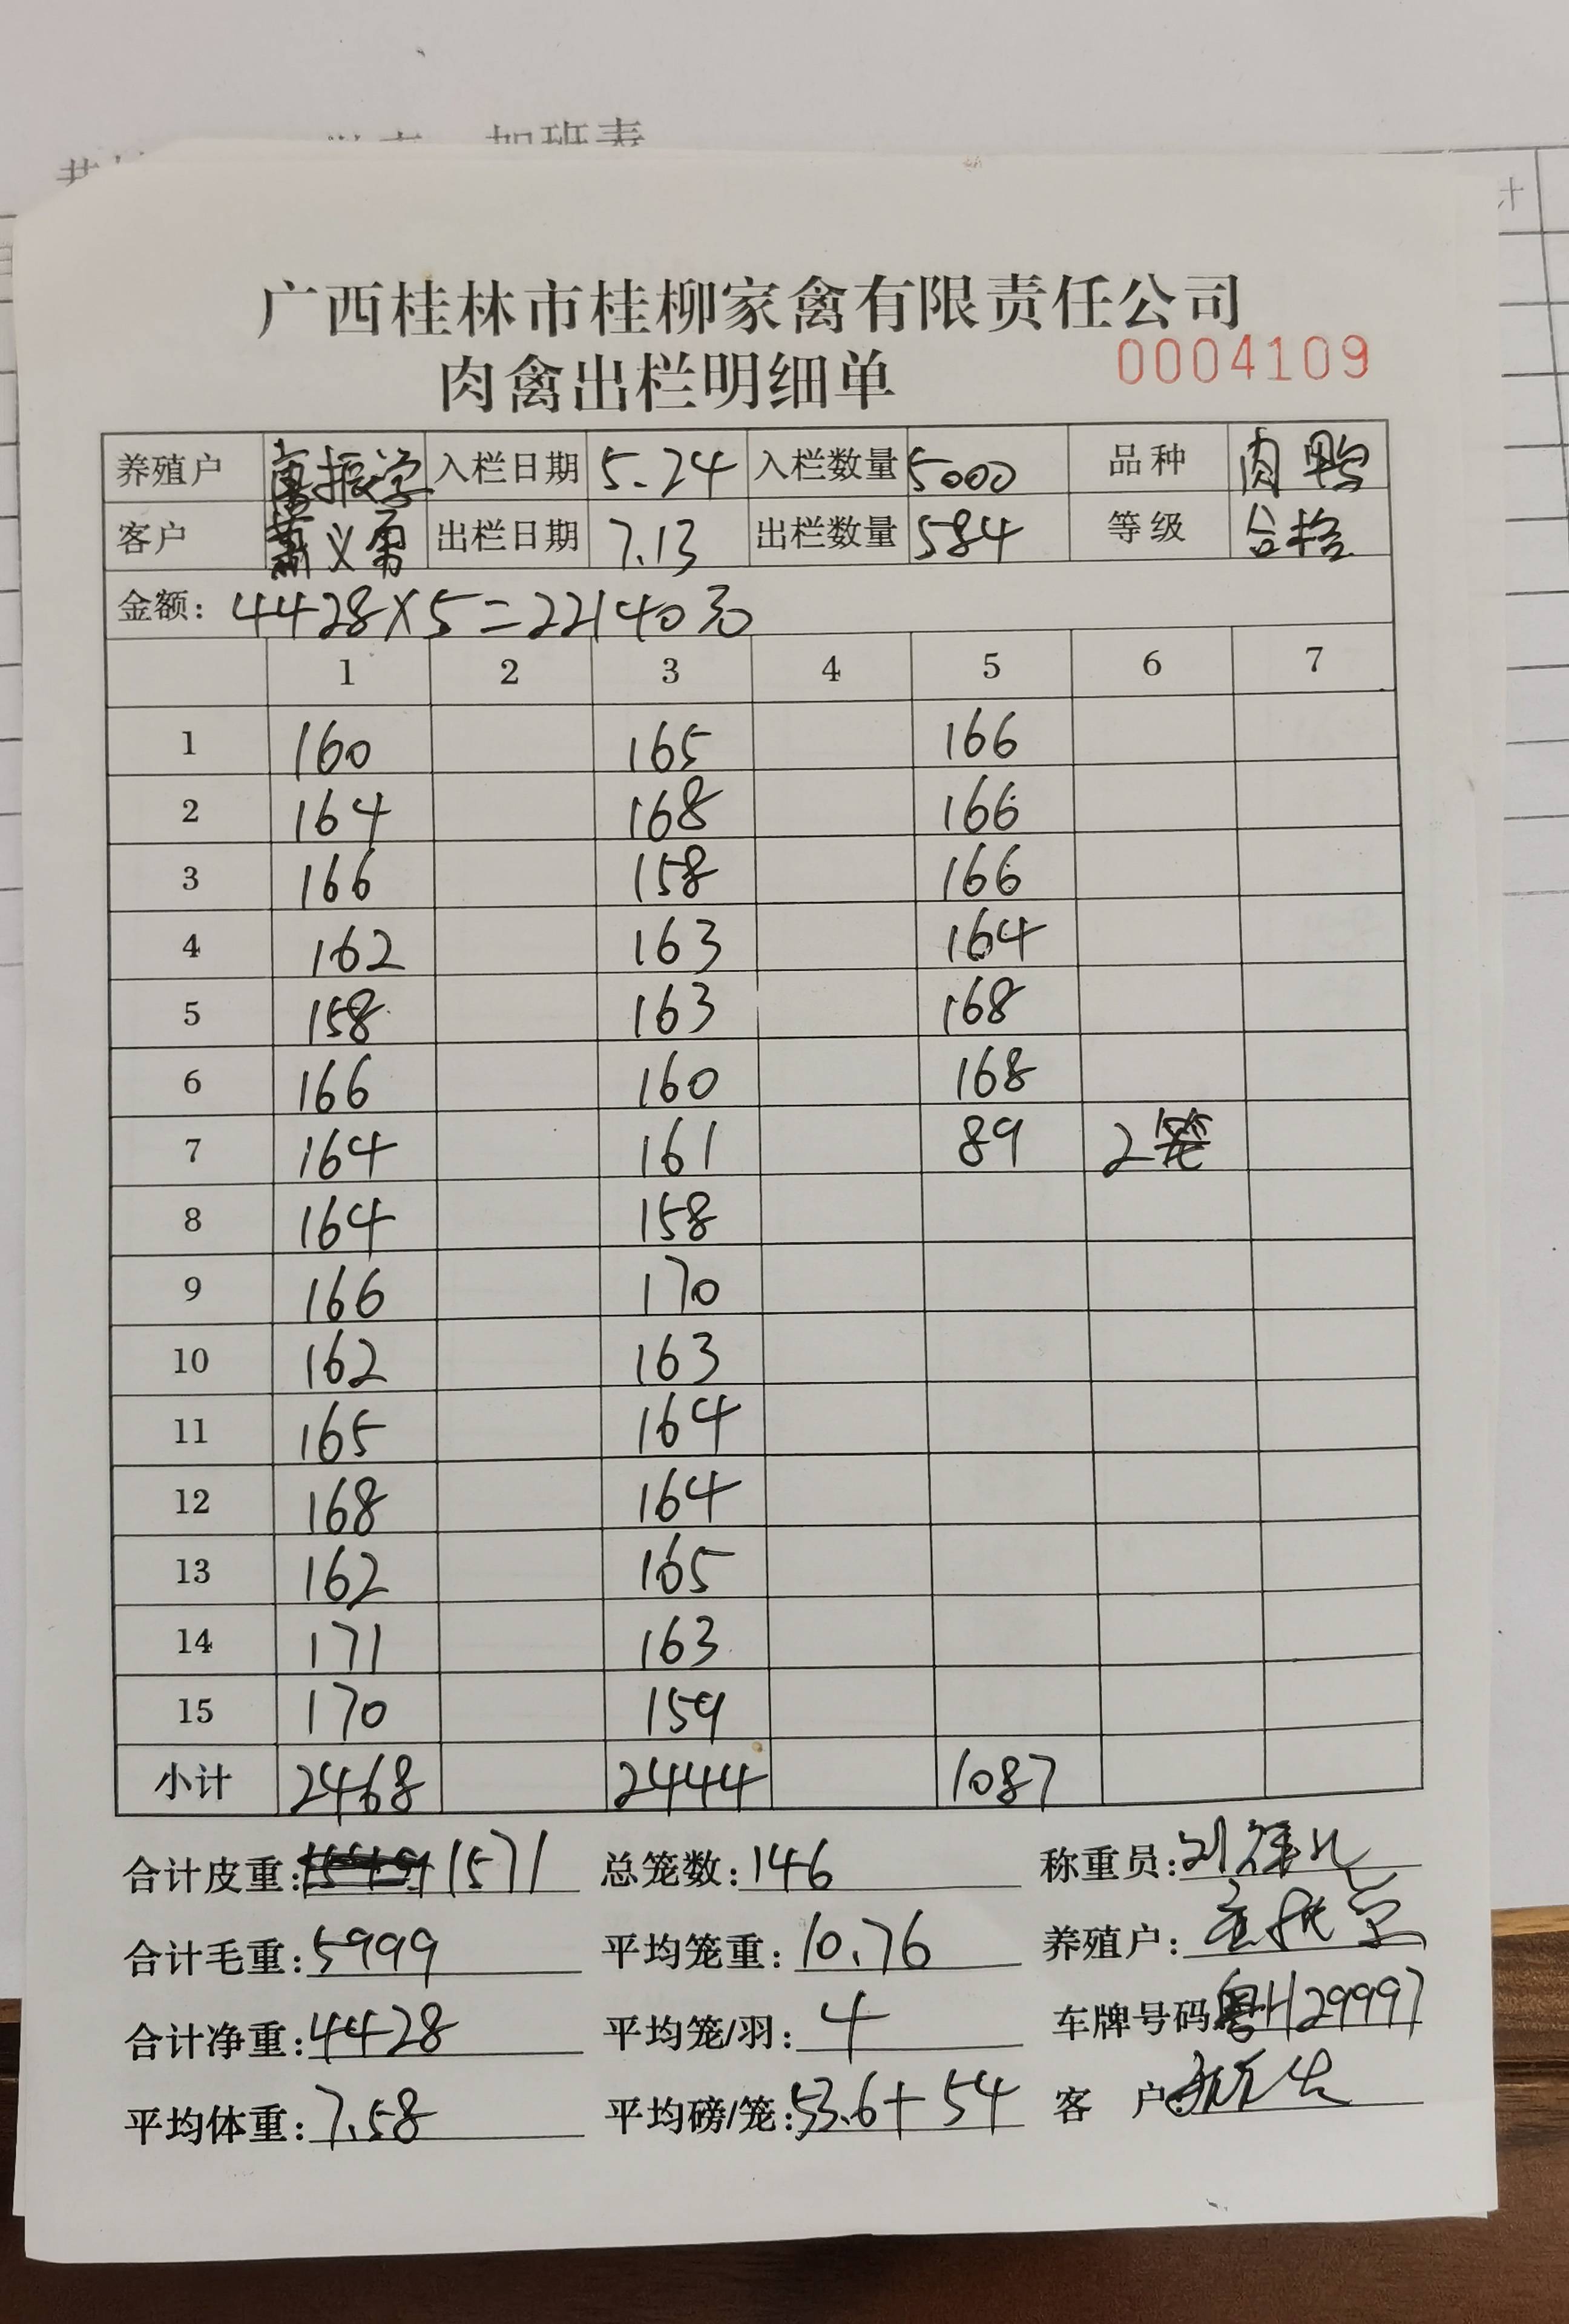 加班表
计
广西桂林市桂柳家禽有限责任公司
肉禽出栏明细单 0004109
养殖户 唐振学 入栏日期 5.24 入栏数量 5000 品种 肉鸭
客户 萧义勇 出栏日期 7.13 出栏数量 584 等级 合格
金额: 4428×5=22140元
1 2 3 4 5 6 7
1 160 165 166
2 164 168 166
3 166 158 166
4 162 163 164
5 158 163 168
6 166 160 168
7 164 161 89 2笼
8 164 158
9 166 170
10 162 163
11 165 164
12 168 164
13 162 165
14 171 163
15 170 159
小计 2468 2444 1087
合计皮重: 1571 总笼数: 146 称重员:
合计毛重: 5999 平均笼重: 10.76 养殖户:
合计净重: 4428 平均笼/羽: 4 车牌号码 粤H29997
平均体重: 7.58 平均磅/笼: 53.6+54 客 户